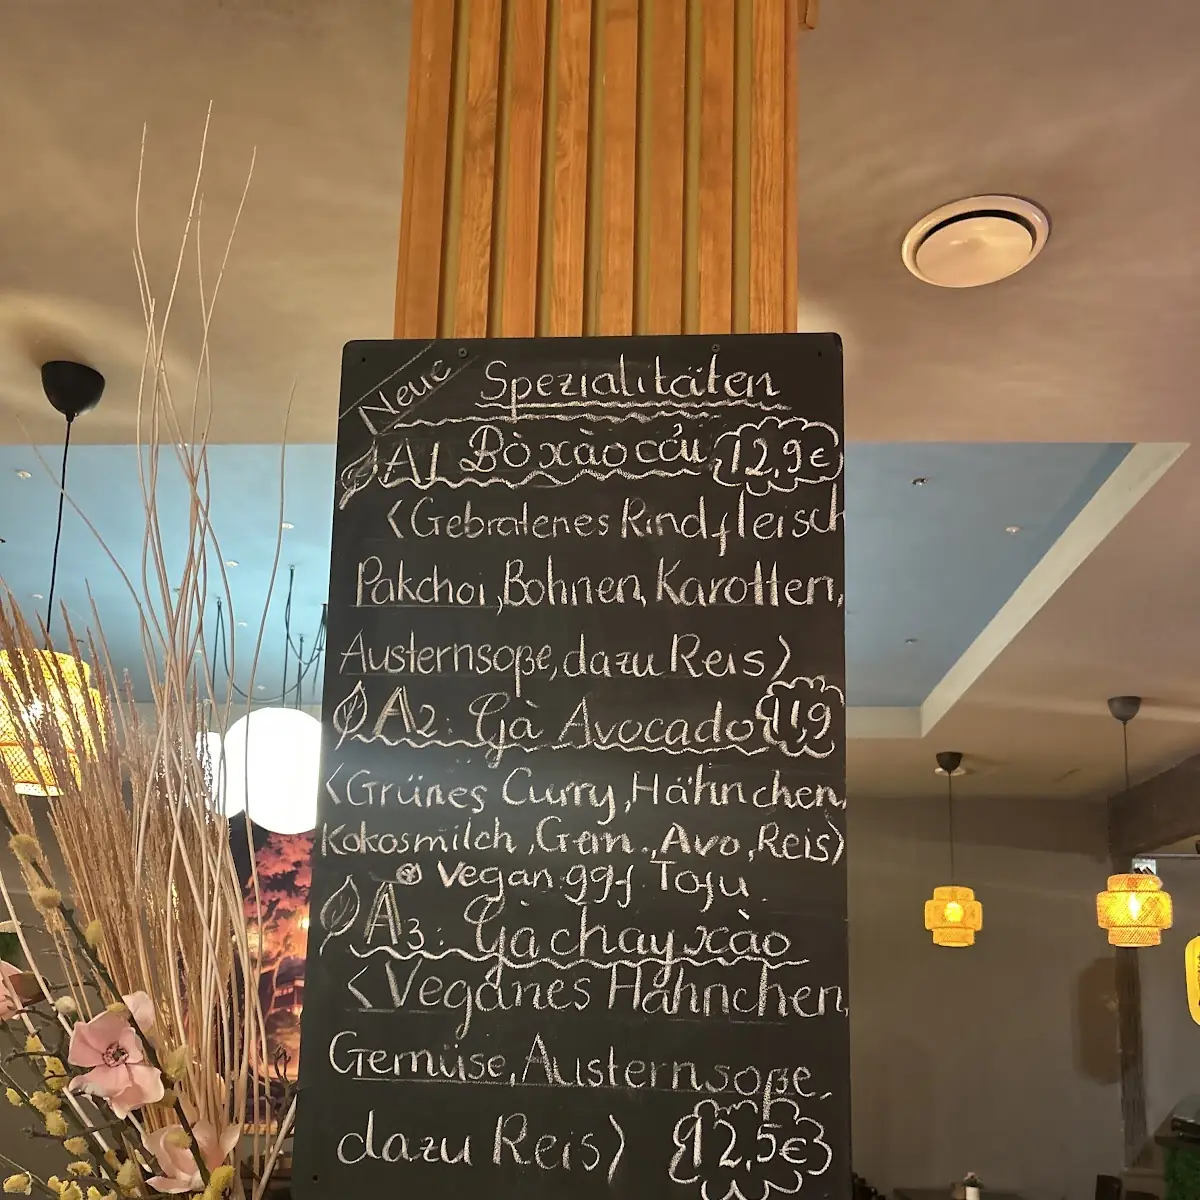 Neue Spezialitäten
A1 Bò xào cải 12,9€
<Gebratenes Rindfleisch
Pakchoi, Bohnen, Karotten,
Austernsoße, dazu Reis>
A2: Gà Avocado 11,9
<Grünes Curry, Hähnchen,
Kokosmilch, Gem., Avo, Reis>
Vegan ggf Tofu.
A3: Gà chay xào
<Veganes Hähnchen,
Gemüse, Austernsoße,
dazu Reis> 12,5€